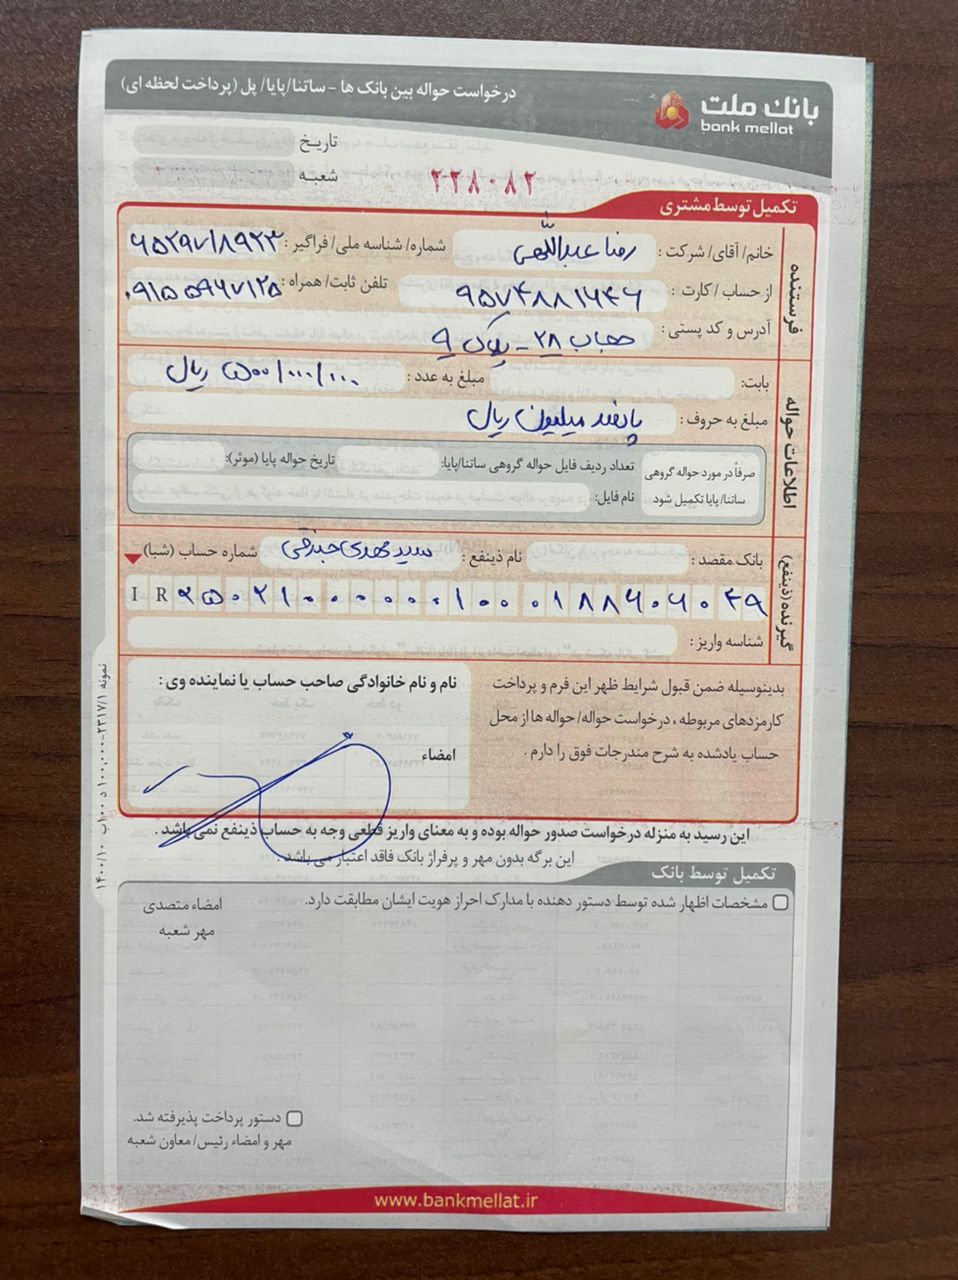 بانک ملت
bank mellat
درخواست حواله بین بانک ها - ساتنا/پایا/پل (پرداخت لحظه ای)
تاریخ
شعبه
۲۲۸۰۸۲
تکمیل توسط مشتری
فرستنده
خانم/آقای/شرکت : رضا عبداللهی شماره/شناسه ملی/فراگیر :
از حساب/کارت : ۹۵۷۴۸۸۱۶۴۶ تلفن ثابت/همراه : ۰۹۱۵۵۹۶۷۱۲۵
آدرس و کد پستی : حجاب ۲۸ - پلاک ۹
اطلاعات حواله
بابت: مبلغ به عدد : ۵۰۰/۰۰۰/۰۰۰ ریال
مبلغ به حروف : پانصد میلیون ریال
صرفاً در مورد حواله گروهی ساتنا/پایا تکمیل شود
تعداد ردیف فایل حواله گروهی ساتنا/پایا: تاریخ حواله پایا (موثر):
نام فایل:
گیرنده (ذینفع)
بانک مقصد : نام ذینفع : سید مهدی شماره حساب (شبا)
IR ۲۵۰۲۱۰۰۰۰۰۰۰۱۰۰۰۱۸۸۶۰۶۰۴۹
شناسه واریز :
بدینوسیله ضمن قبول شرایط ظهر این فرم و پرداخت
کارمزدهای مربوطه ، درخواست حواله/حواله ها از محل
حساب یادشده به شرح مندرجات فوق را دارم .
نام و نام خانوادگی صاحب حساب یا نماینده وی :
امضاء
این رسید به منزله درخواست صدور حواله بوده و به معنای واریز قطعی وجه به حساب ذینفع نمی باشد .
این برگه بدون مهر و پرفراژ بانک فاقد اعتبار می باشد .
تکمیل توسط بانک
مشخصات اظهار شده توسط دستور دهنده با مدارک احراز هویت ایشان مطابقت دارد.
امضاء متصدی
مهر شعبه
دستور پرداخت پذیرفته شد.
مهر و امضاء رئیس/معاون شعبه
www.bankmellat.ir
نمونه ۲۳۱۷/۱-۱۰۰,۰۰۰ د ۱۰۰ ب ۱۴۰۰/۱۰